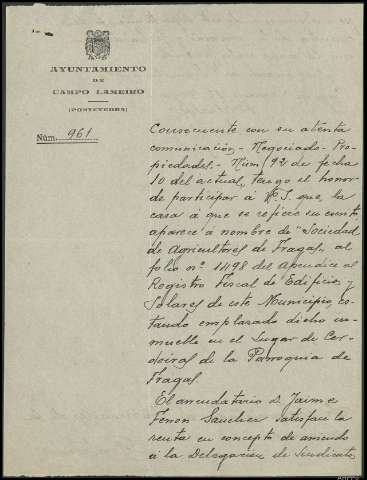 AYUNTAMIENTO
DE
CAMPO LAMEIRO
(PONTEVEDRA)
Núm. 961
Consecuente con su atenta
comunicación,- Negociado- Pro-
piedades.- Núm 192 de fecha
10 del actual, tengo el honor
de participar á V.S. que, la
casa á que se refiere su escrito
aparece á nombre de "Sociedad
de Agricultores de Fragas, al
folio nº 1498 del Apendice al
Registro Fiscal de Edificios y
Solares de este Municipio, es-
tando emplazado dicho in-
mueble en el Lugar de
de la Parroquia de
Fragas
El arrendatario D. Jaime
Sanchez satisface la
renta en concepto de arriendo
á la Delegación de Sindicato